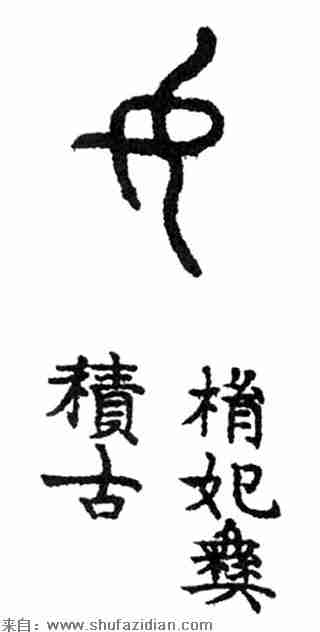 女
妃彝
積古
来自：www.shufazidian.com